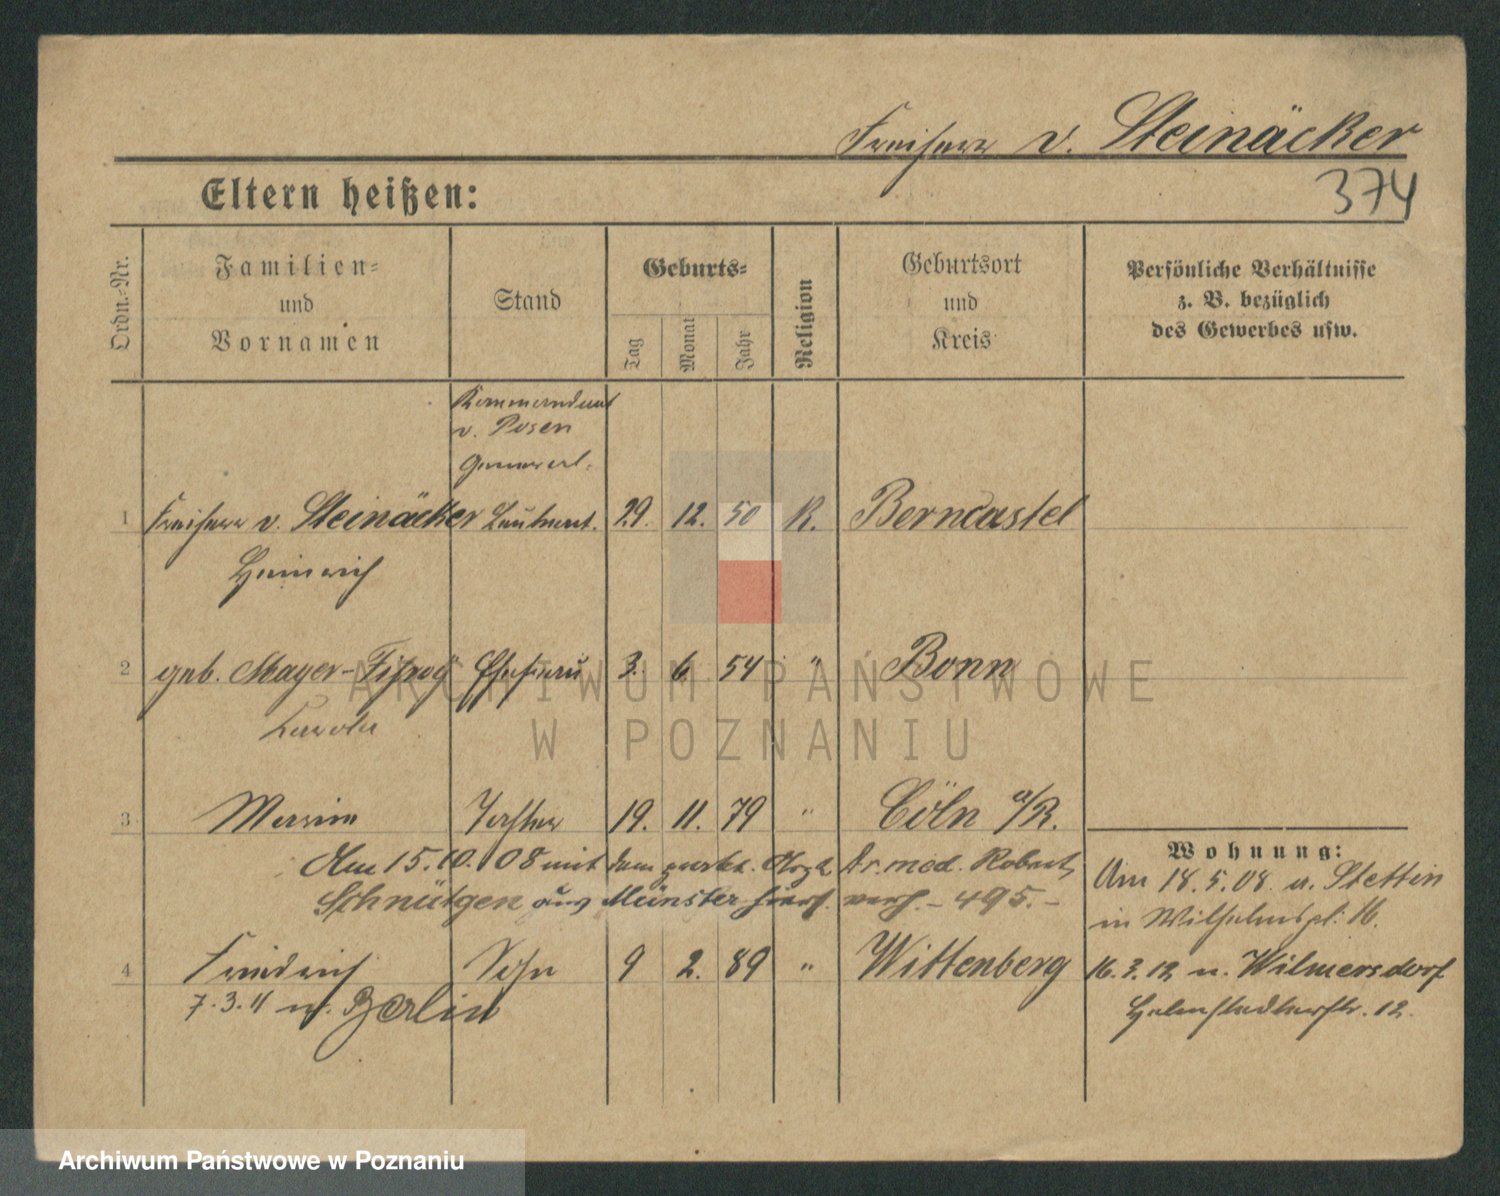 Freiherr v. Steinäcker
374
Eltern heißen:
Ordn.-Nr.
Familien-
und
Vornamen
Stand
Geburts-
Tag
Monat
Jahr
Religion
Geburtsort
und
Kreis
Persönliche Verhältnisse
z. B. bezüglich
des Gewerbes usw.
Kommandant
v. Posen
General-
1 Freiherr v. Steinäcker Leutnant. 29. 12. 50 R. Berncastel
Heinrich
2 geb. Mayer- Ehefrau 3. 6. 54 " Bonn
Carola
3 Maria Tochter 19. 11. 79 " Cöln a/R.
Am 15.10.08 mit dem prakt. Arzt Dr. med. Robert
Schnütgen aus Münster hier verh. - 495. -
4 Friedrich Sohn 9 2. 89 " Wittenberg
7.3.11 n. Berlin
Wohnung:
Am 18.5.08 a. Stettin
in Wilhelmspl. 16.
16.3.12 n. Wilmersdorf
Helmstedterstr. 12.
ARCHIWUM PAŃSTWOWE
W POZNANIU
Archiwum Państwowe w Poznaniu